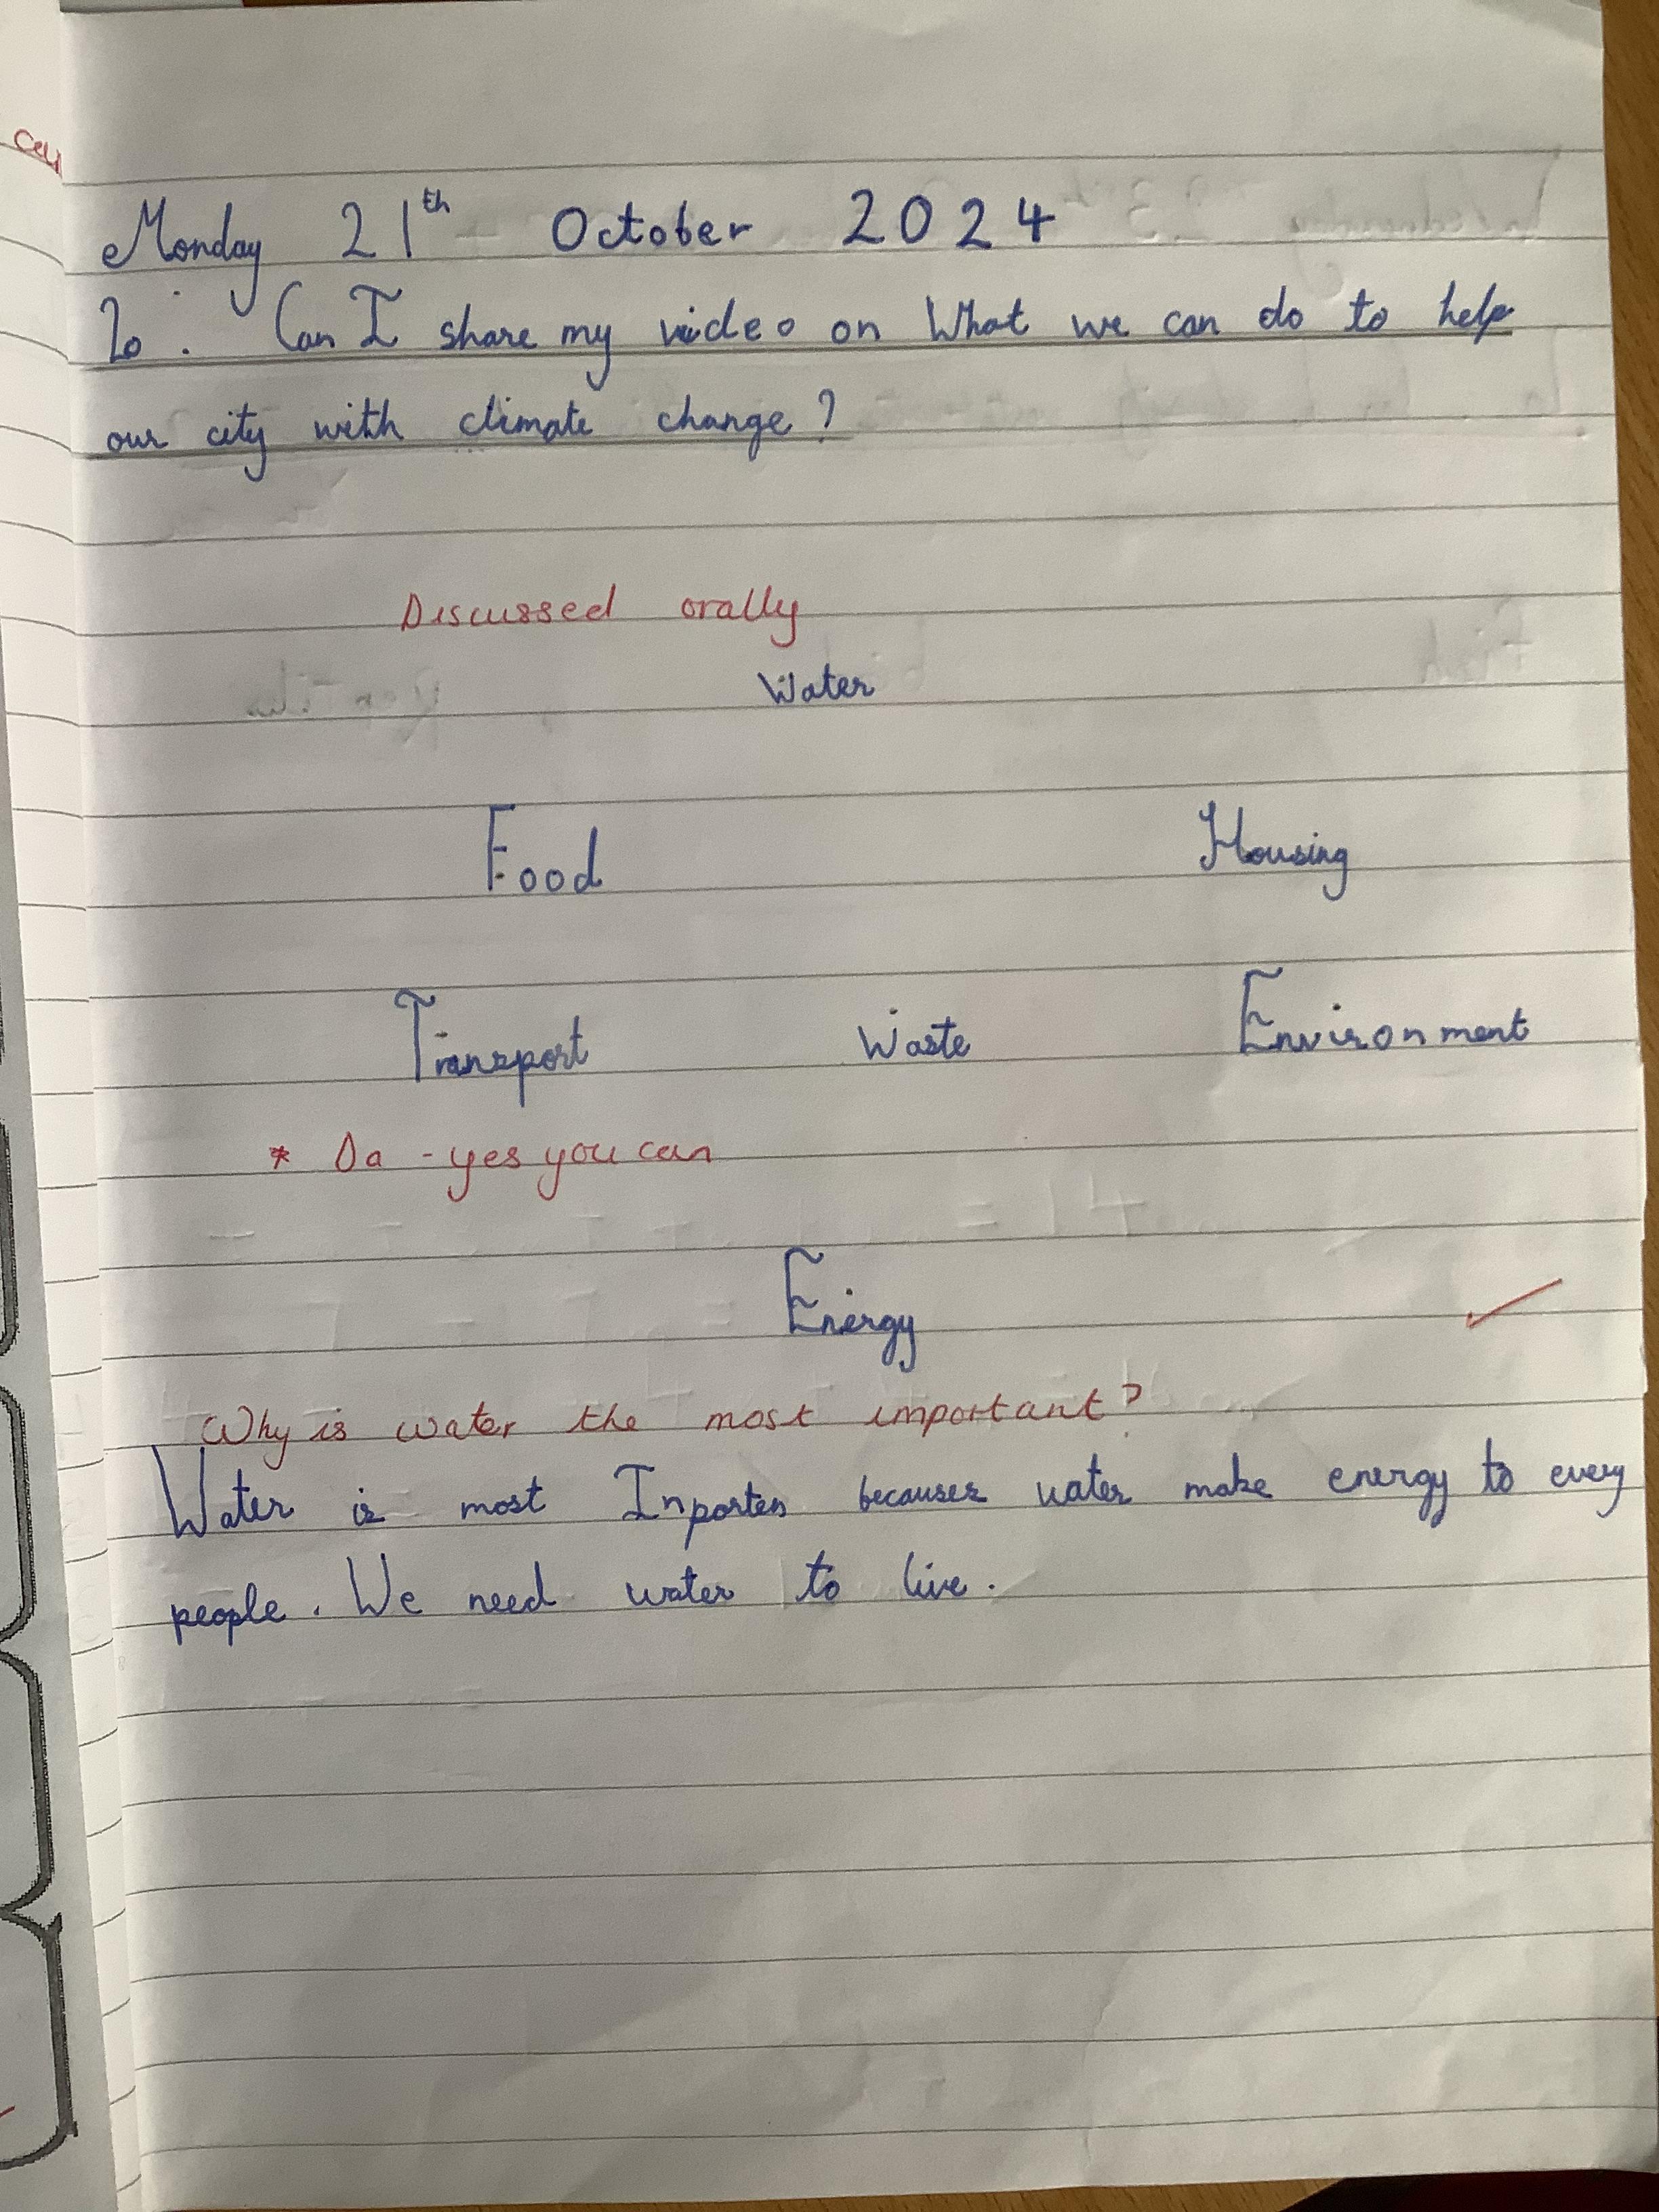 Monday 21th October 2024
Lo. Can I share my video on What we can do to help
our city with climate change?
Discussed orally
Water
Food Housing
Transport Waste Environment
* Da - yes you can
Energy
Why is water the most important?
Water is most Inporten becauses water make energy to every
people. We need water to live.